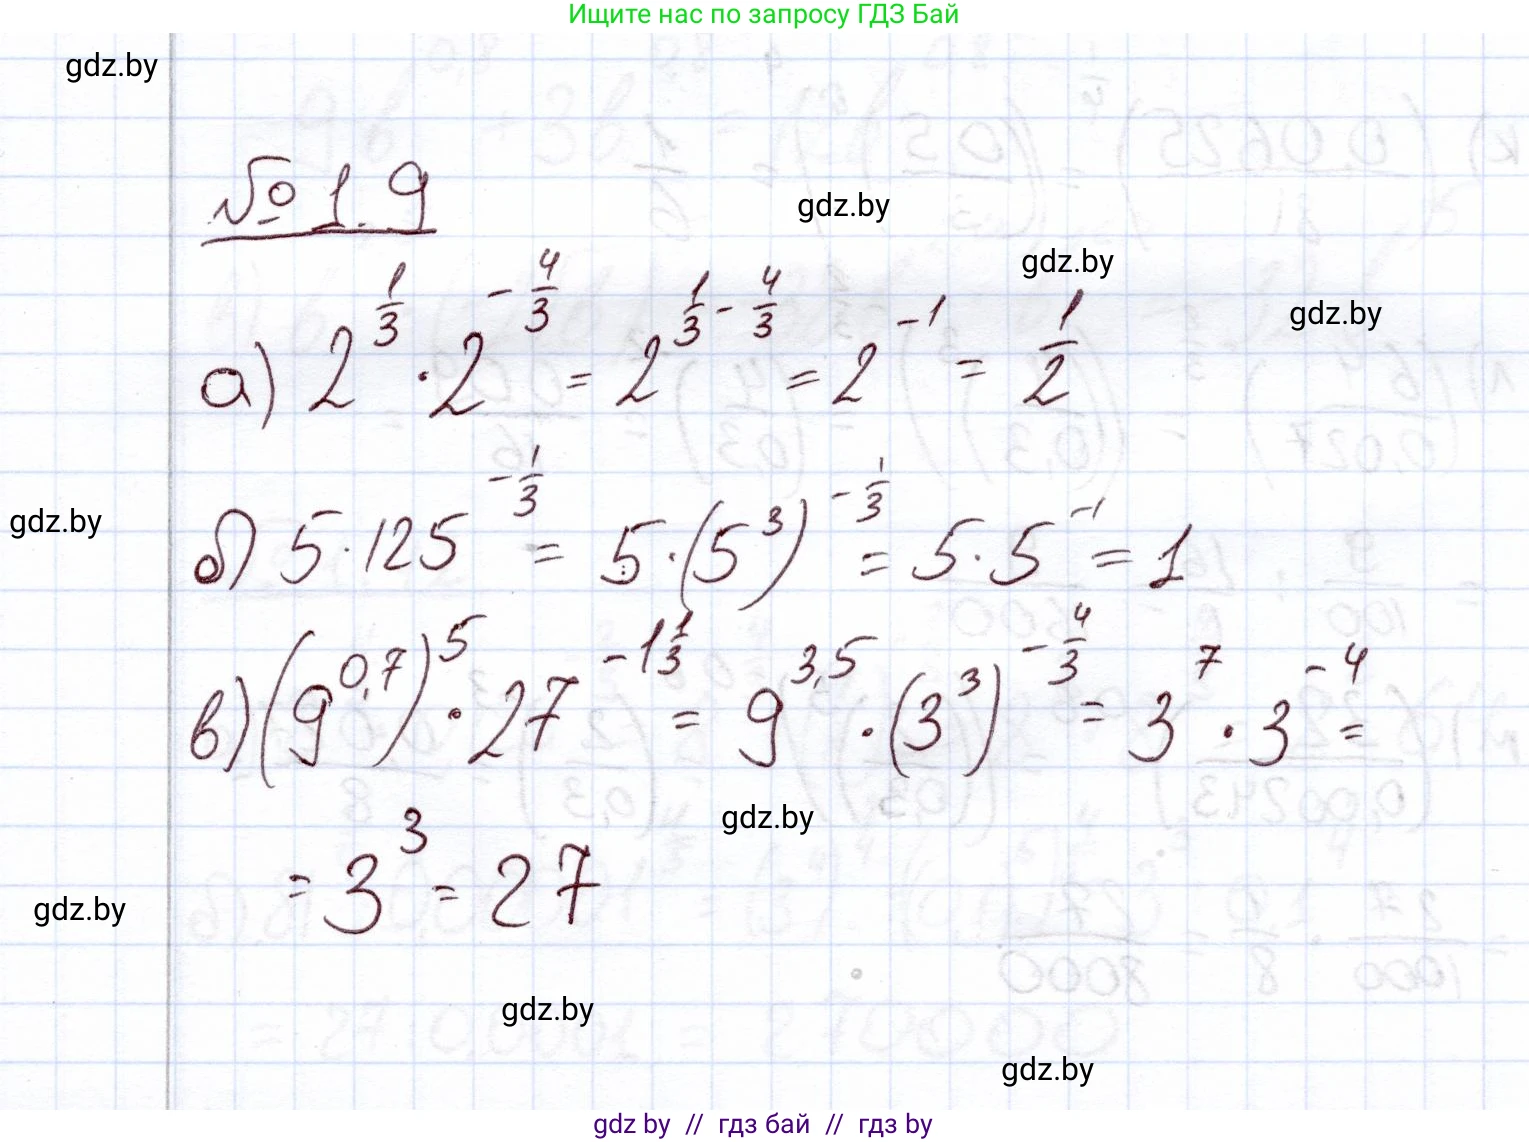 Ищите нас по запросу ГДЗ Бай
gdz.by
№ 1.9
gdz.by
gdz.by
gdz.by
а) 2^{1/3} · 2^{-4/3} = 2^{1/3 - 4/3} = 2^{-1} = 1/2
gdz.by
б) 5 · 125^{-1/3} = 5 · (5^3)^{-1/3} = 5 · 5^{-1} = 1
в) (9^{0,7})^5 · 27^{-1 1/3} = 9^{3,5} · (3^3)^{-4/3} = 3^7 · 3^{-4} =
gdz.by
= 3^3 = 27
gdz.by
gdz.by
gdz.by
gdz by // гдз бай // гдз by